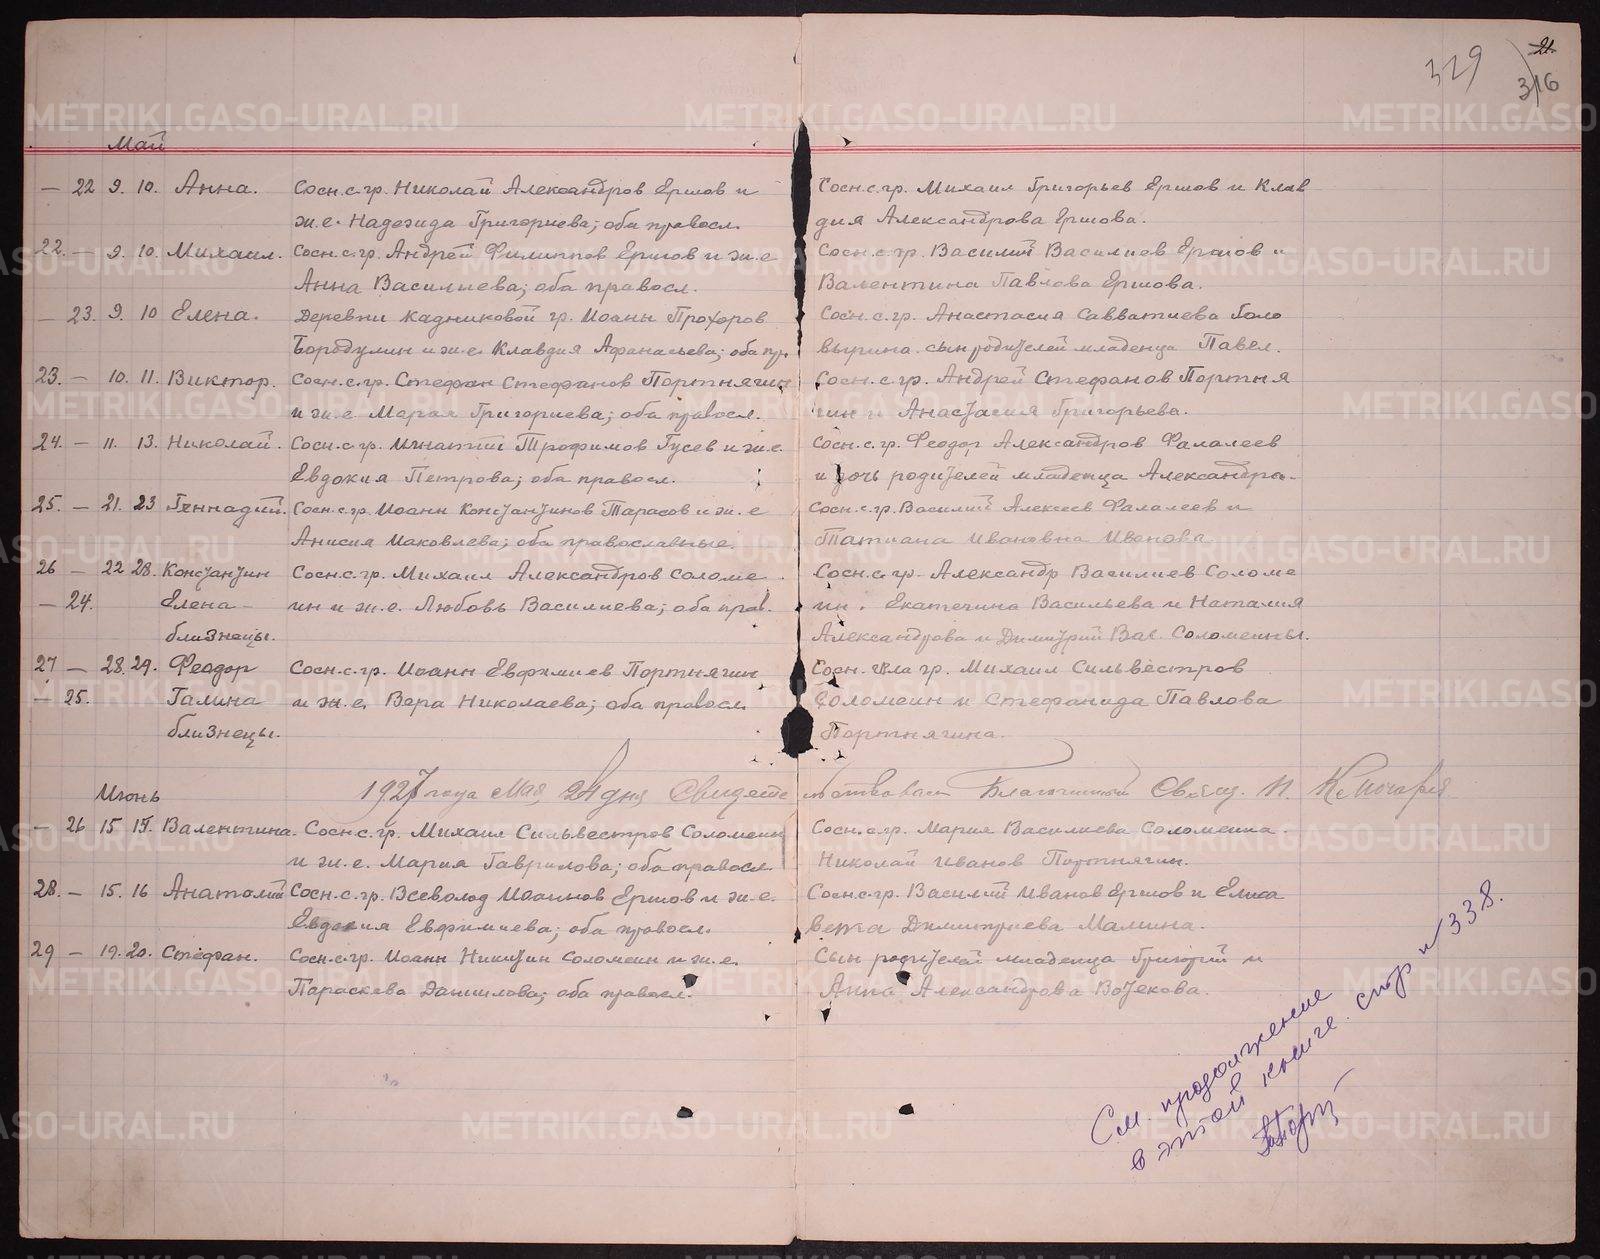 21.
329 316
Май
— 22 9. 10. Анна. Сосн.с.гр. Николай Александров Ершов и
ж.е. Надежда Григориева; оба правосл.
Сосн.с.гр. Михаил Григорьев Ершов и Клав
дия Александрова Ершова.
22. — 9. 10. Михаил. Сосн.с.гр. Андрей Филиппов Ершов и ж.е
Анна Василиева; оба правосл.
Сосн.с.гр. Василий Василиев Ершов и
Валентина Павлова Ершова.
— 23. 9. 10 Елена. Деревни Кадниковой гр. Иоанн Прохоров
Бородулин и ж.е. Клавдия Афанасьева; оба пр.
Сосн.с.гр. Анастасия Савватиева Голо
вырина. сын родителей младенца Павел.
23. — 10. 11. Виктор. Сосн.с.гр. Стефан Стефанов Портнягин
и ж.е. Мария Григориева; оба правосл.
Сосн.с.гр. Андрей Стефанов Портня
гин и Анастасия Григорьева.
24. — 11. 13. Николай. Сосн.с.гр. Игнатий Трофимов Гусев и ж.е.
Евдокия Петрова; оба правосл.
Сосн.с.гр. Феодор Александров Фалалеев
и дочь родителей младенца Александра.
25. — 21. 23 Геннадий. Сосн.с.гр. Иоанн Константинов Тарасов и ж.е
Анисия Иаковлева; оба православные.
Сосн.с.гр. Василий Алексеев Фалалеев и
Татиана Ивановна Иванова
26 — 22 28. Константин Сосн.с.гр. Михаил Александров Соломе
— 24. Елена — ин и ж.е. Любовь Василиева; оба прав.
близнецы.
Сосн.с.гр. Александр Василиев Соломе
ин. Екатерина Васильева и Наталия
Александрова и Димитрий Вас. Соломеины.
27 — 28. 29. Феодор Сосн.с.гр. Иоанн Евфимиев Портнягин
— 25. Галина и ж.е. Вера Николаева; оба правосл.
близнецы.
Сосн. села гр. Михаил Сильвестров
Соломеин и Стефанида Павлова
Портнягина.
1927 года Мая 24 дня Свидетельствовал Благочинный Свящ. И.
Июнь
— 26 15 15. Валентина. Сосн.с.гр. Михаил Сильвестров Соломеин
и ж.е. Мария Гаврилова; оба правосл.
Сосн.с.гр. Мария Василиева Соломеина.
Николай Иванов Портнягин.
28. — 15. 16 Анатолий Сосн.с.гр. Всеволод Иоаннов Ершов и ж.е.
Евдокия Евфимиева; оба правосл.
Сосн.с.гр. Василий Иванов Ершов и Елиса
вета Димитриева Малина.
29 — 19. 20. Стефан. Сосн.с.гр. Иоанн Никитин Соломеин и ж.е.
Параскева Даниилова; оба правосл.
Сын родителей младенца Григорий и
Анна Александрова Вотекова.
См. продолжение
в этой книге. стр № 338.